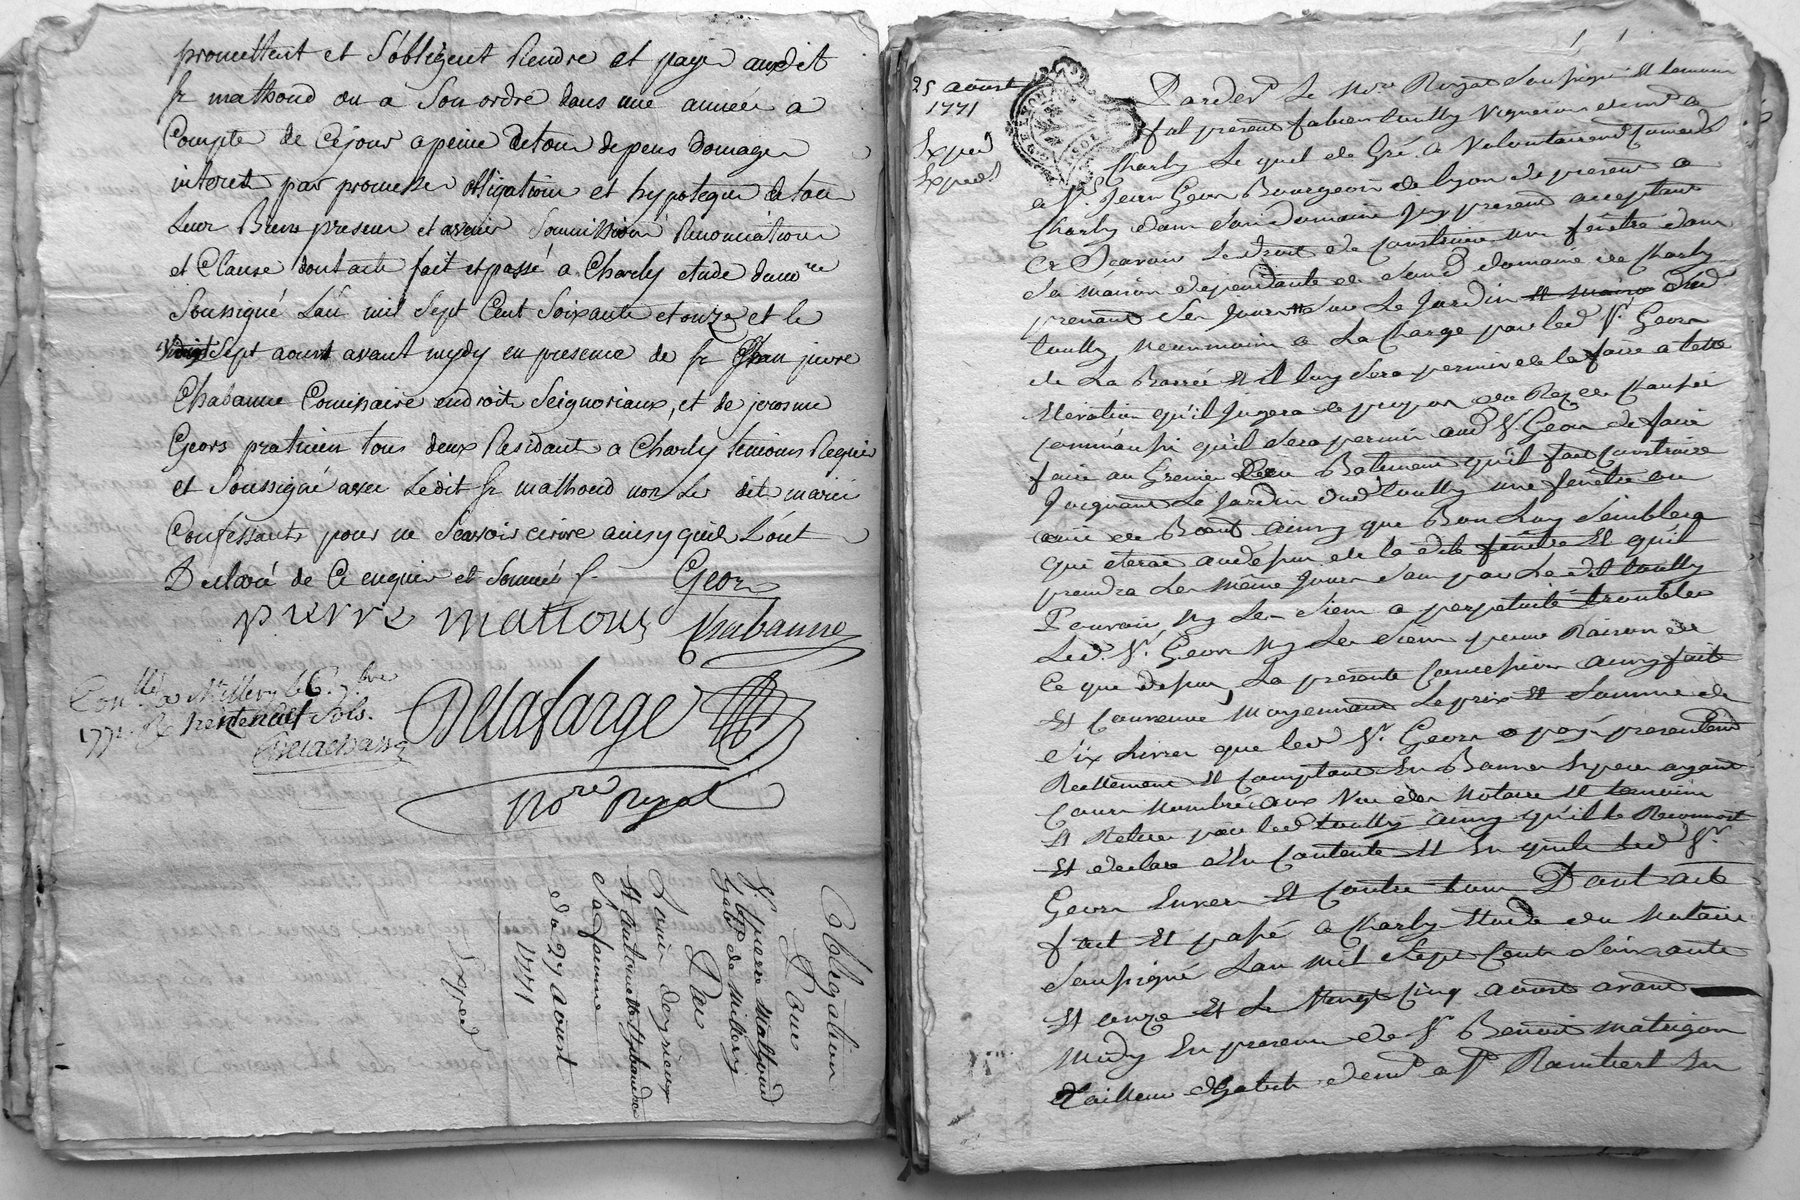 promettent et s'obligent Rendre et payer audit
Sr mathoud ou a Son ordre dans une année a
Compte de Cejour a peine de tous depens domages
interest par promesse obligation et hypoteque de tous
Leur Biens presens et avenir Soumission Renonciation
et Clause dont acte fait et passé a Charly etude du nore
Soussigné L'an mil Sept Cent Soixante et onze et le
vingt Sept aoust avant mydy en presence de Sr
Chabanne Commissaire en droits Seigneuriaux, et de jerosme
Geors praticien tous deux Residants a Charly temoins Requis
et Soussigné avec Ledit Sr mathoud non Les dits mariés
Confessants pour ne Scavoir ecrire ainsy quils L'ont
Declaré de Ce enquis et Sommés Geors
pierre mattoud Chabanne
Conllé a Millery le 6. 7bre
1771. Rx trente neuf Sols.
Delachassa
Delafarge
Nore Royal
Obligation
Pour
Sr. pierre Mathoud
de Millery
Par
Louis
et Antoinette
Sa femme
du 27 aoust
1771
Exped
25 aoust
1771
Exped
Exped
Pardevt Le Nore Royal Soussigné et temoins
fut present fabien toully Vigneron demt a
Charly Le quel de Gré a Volontairement
a Sr. Jean Geors Bourgeois de Lyon de present a
Charly dans Son Domaine Icy present acceptant
Ce Scavoir Le Droit de Construire une fenêtre dans
Sa maison dependante de Sond Domaine de Charly
prenant Ses Jours Sur Le Jardin dud
toully neanmoins a La Charge par led Sr. Geors
de La Barrée et il luy Sera permis de la faire a telle
Elevation qu'il Jugera a propos du Rez de Chaussé
comm'aussi qu'il Sera permis aud Sr. Geors de faire
faire au Grenier Batiment qu'il fait Construire
Joignant Le Jardin dud toully une fenêtre ou
ainsy que Bon Luy Semblera
qui Sera audessus de la dite fenêtre et qu'il
prendra Les même Jours Sans que Le dit toully
Pouvoir Ny Les Siens a perpetuité troubler
Led. Sr. Geors Ny Les Siens pour Raison de
Ce que dessus, La presente Concession ainsy faite
et Convenue Moyennant Le prix et Somme de
Six Livres que led Sr. Geors a payé presentement
Reellement et Comptant En Bonnes Especes ayant
Cours Nombrée aux Vue des Notaire et temoins
et Retirée par led toully ainsy qu'il le Reconnoit
Et declare S'En Contente et En quitte Led Sr.
Geors Envers et Contre tous Dont acte
fait et passé a Charly Etude du Notaire
Soussigné L'an Mil Sept Cent Soixante
Et onze et Le Vingt Cinq aoust avant
Midy En presence de Sr Benoit Matrigon
tailleur d'habits demt a St Rambert En